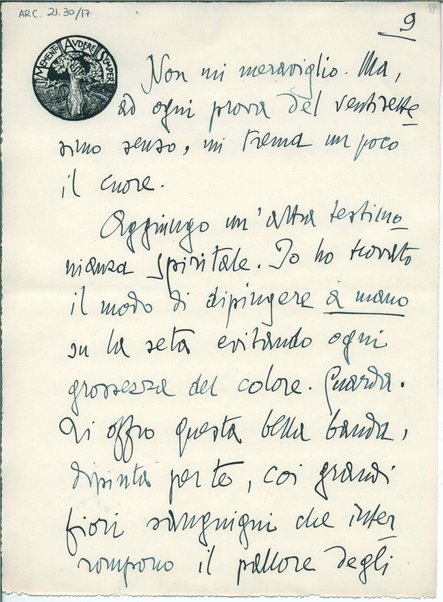 ARC. 21.30/17
9
MEMENTO AUDERE SEMPER
Non mi meraviglio. Ma,
ad ogni prova del ventisette
simo senso, mi trema un poco
il cuore.
Aggiungo un'altra testimo
nianza spiritale. Io ho trovato
il modo di dipingere a mano
su la seta evitando ogni
grossezza del colore. Guarda.
Ti offro questa bella banda,
dipinta per te, coi grandi
fiori sanguigni che inter
rompono il pallore degli